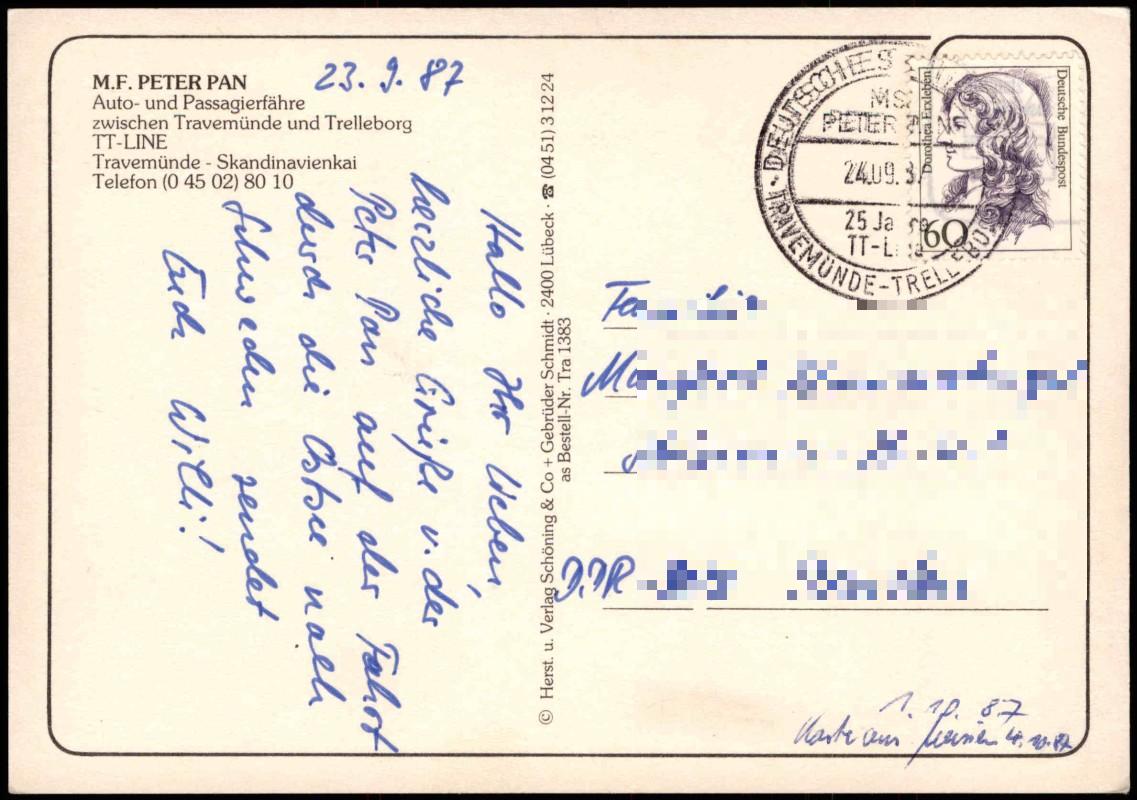 M.F. PETER PAN
Auto- und Passagierfähre
zwischen Travemünde und Trelleborg
TT-LINE
Travemünde - Skandinavienkai
Telefon (0 45 02) 80 10
23. 9. 87
Hallo Ihr Lieben,
herzliche Grüße v. der
Peter Pan auf der Fahrt
durch die Ostsee nach
Schweden sendet
Euch Willi!
© Herst. u. Verlag Schöning & Co + Gebrüder Schmidt · 2400 Lübeck · ☎ (04 51) 3 12 24
as Bestell-Nr. Tra 1383
MS
PETER PAN
24.09.87
25 Ja
TT-Line
TRAVEMÜNDE-TRELLEBO
Dorothea Erxleben
Deutsche Bundespost
60
DDR
1. 10. 87
Karte aus 4.10.87